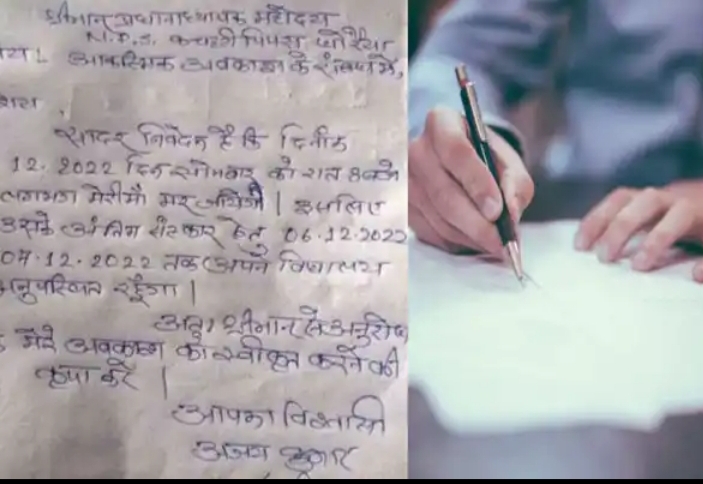 श्रीमान् प्रधानाध्यापक महोदय
N.P.S. कचहरी पिपरा
आकस्मिक अवकाश के संबंध में,
सादर निवेदन है कि दिनांक
12.2022 दिन सोमवार को रात 8 बजे
लगभग मेरी माँ मर जायेगी | इसलिए
उसके अंतिम संस्कार हेतु 06.12.2022
07.12.2022 तक अपने विद्यालय
रहूँगा |
अतः श्रीमान् से अनुरोध
मेरे अवकाश को स्वीकृत करने की
कृपा करें |
आपका विश्वासी
अजय कुमार